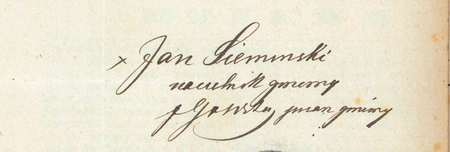 x Jan Sieminski
naczelnik gminy
pisarz gminy